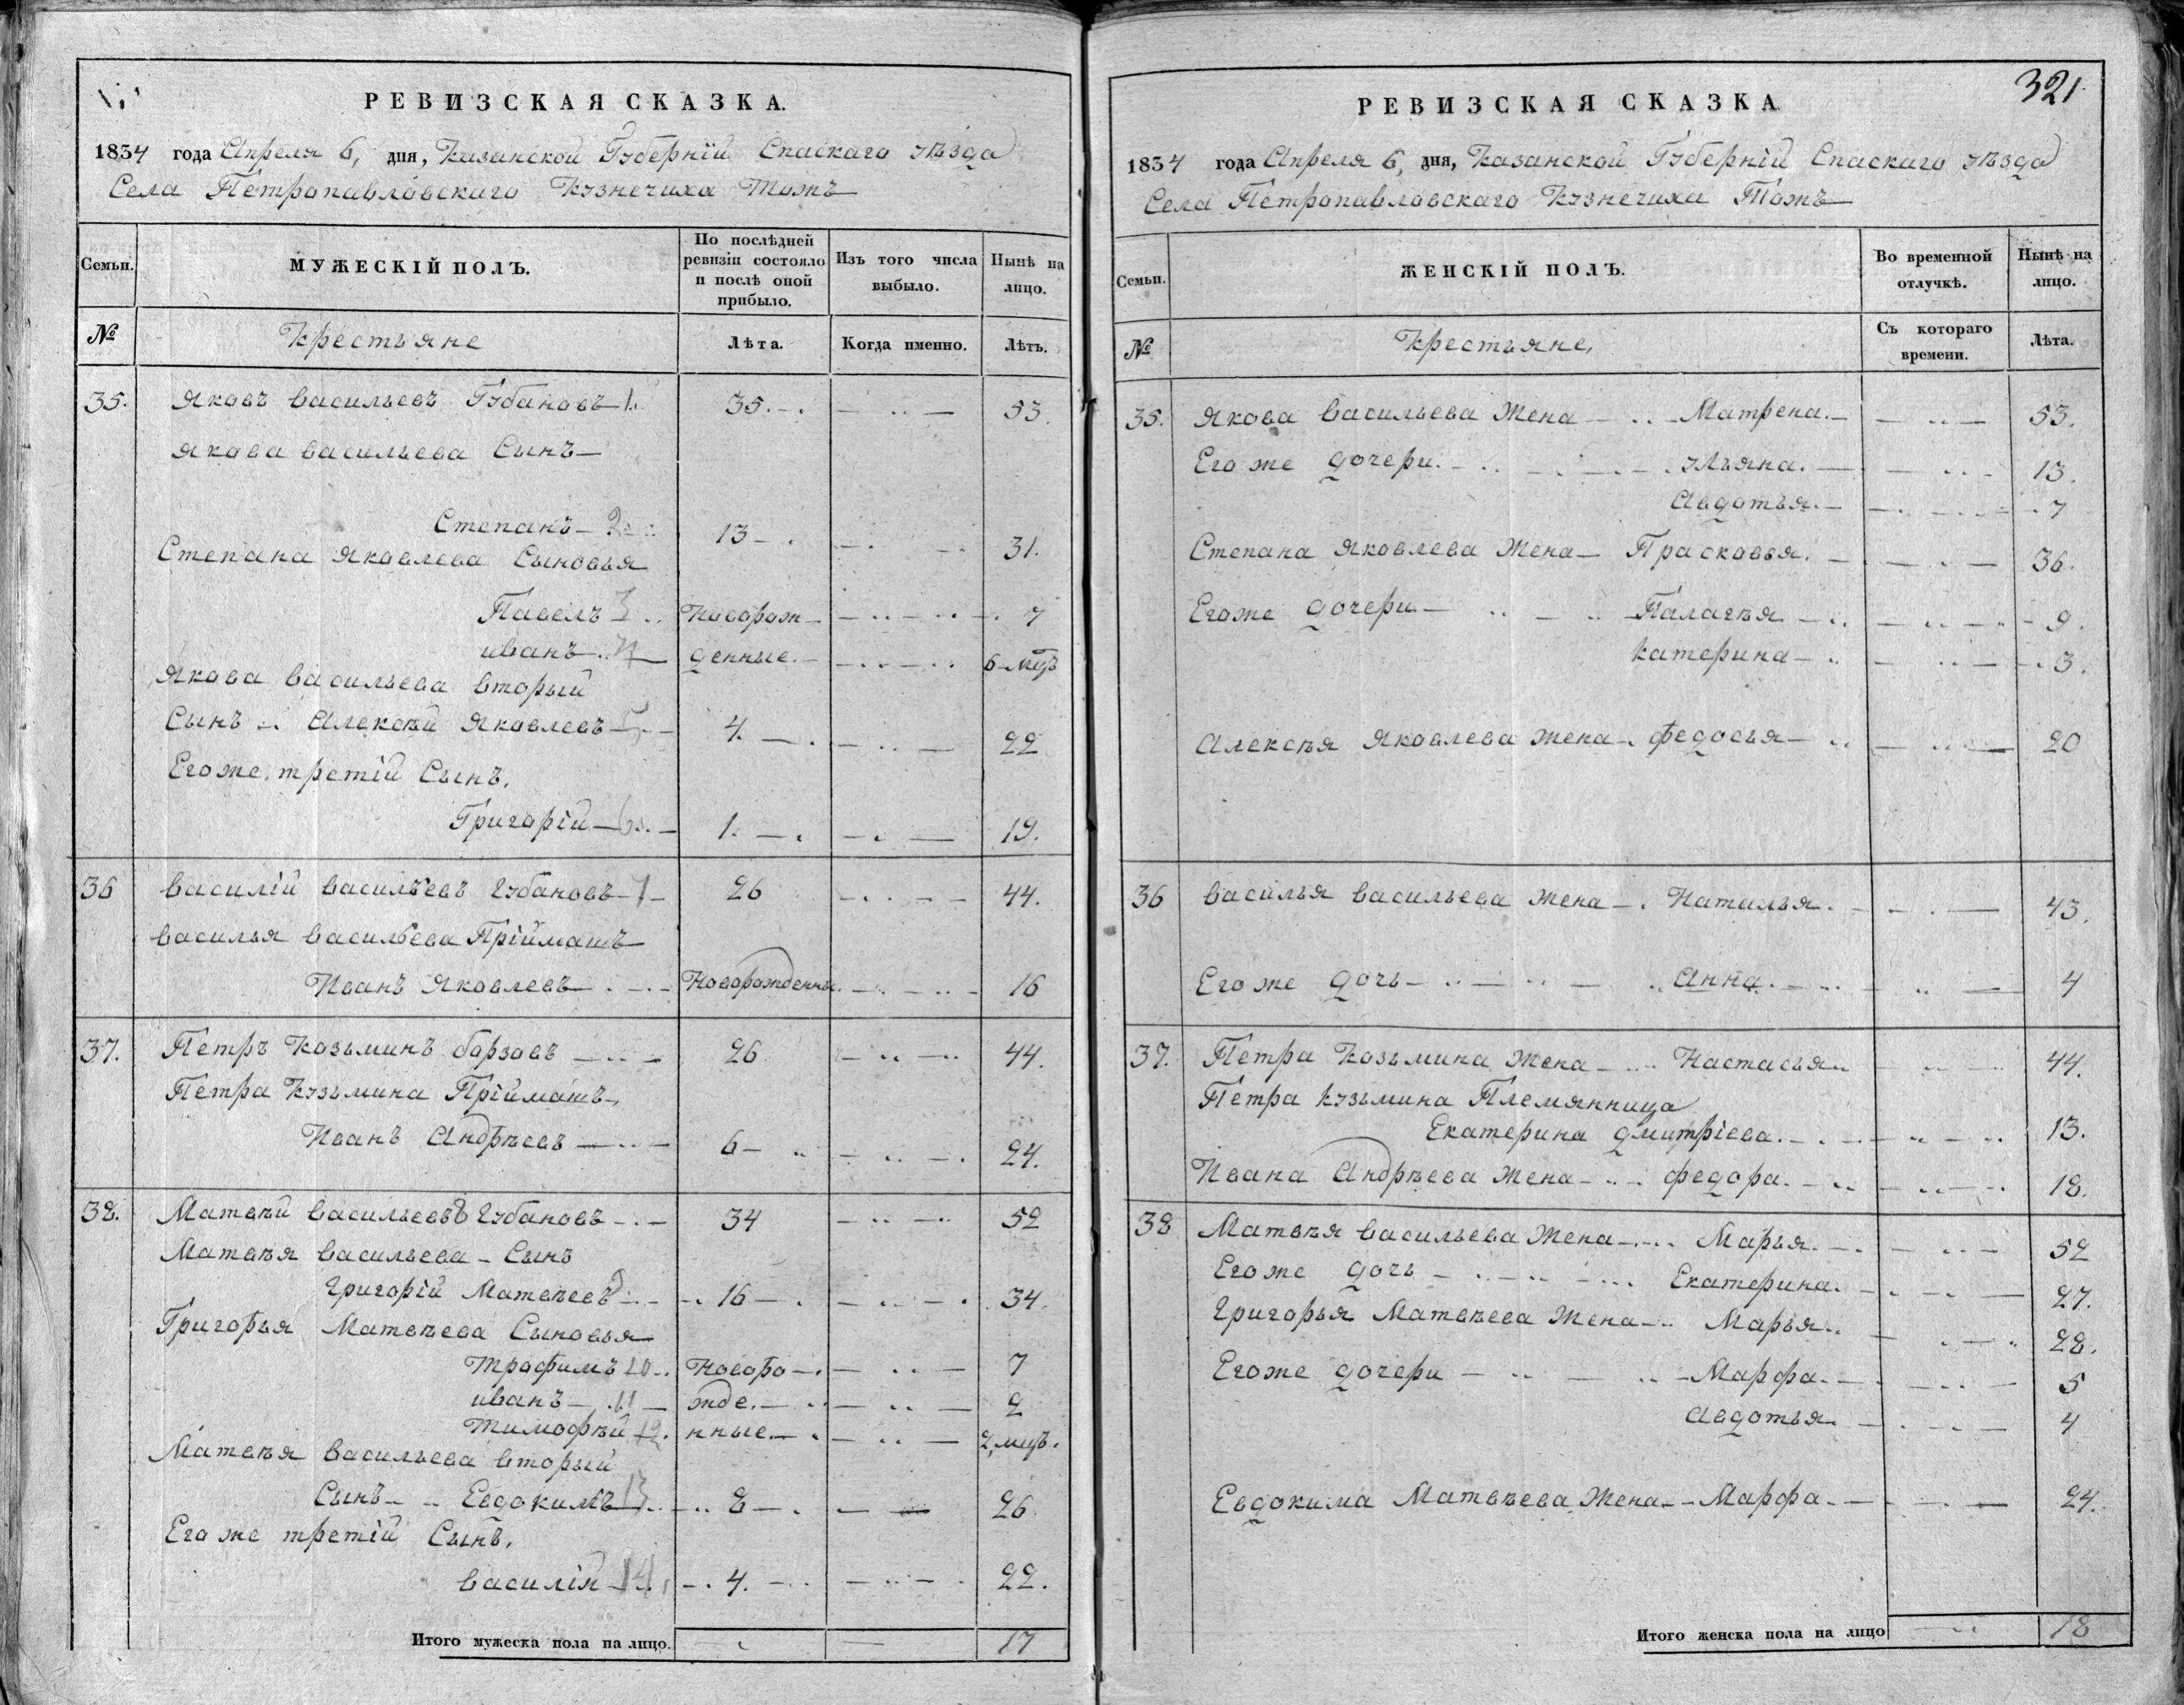 РЕВИЗСКАЯ СКАЗКА.
1834 года Апреля 6, дня, Казанской Губернїи Спаскаго уѣзда
Села Петропавловскаго Кузнечиха Тожъ
Семьи. МУЖЕСКІЙ ПОЛЪ. По послѣдней ревизіи состояло и послѣ оной прибыло. Изъ того числа выбыло. Нынѣ на лицо.
№ Крестьяне Лѣта. Когда именно. Лѣтъ.
35. Яковъ Васильевъ Губановъ 1. 35. 53.
Якова Васильева Сынъ
Степанъ 2 13 31.
Степана Яковлева Сыновья
Павелъ 3 Новорож 7
иванъ 4 денные. 6 мцъ
Якова Васильева вторый
Сынъ Алексѣй Яковлевъ 5 4. 22
Егоже третїй Сынъ.
Григорїй 6 1. 19.
36 Василїй Васильевъ Губановъ 7 26 44.
Василья Васильева Прїймашъ
Иванъ Яковлевъ Новорожденны. 16
37. Петръ Козьминъ борзовъ 26 44.
Петра Кузьмина Прїймашъ
Иванъ Андрѣевъ 6 24.
38. Матвѣй Васильевъ Губановъ 34 52
Матвѣя Васильева Сынъ
Григорїй Матвѣевъ 16 34.
Григорья Матвѣева Сыновья
Трофимъ 10 Новоро 7
иванъ 11 жде. 2
Тимофѣй 12. нные. 2, мцъ.
Матвѣя Васильева вторый
Сынъ Евдокимъ 13 8 26
Егоже третїй Сынъ.
Василїй 14 4. 22.
Итого мужеска пола на лицо. 17
321
РЕВИЗСКАЯ СКАЗКА
1834 года Апреля 6, дня, Казанской Губернїи Спаскаго уѣзда
Села Петропавловскаго Кузнечиха Тожъ
Семьи. ЖЕНСКІЙ ПОЛЪ. Во временной отлучкѣ. Нынѣ на лицо.
№ Крестьяне, Съ котораго времени. Лѣта.
35. Якова Васильева Жена Матрена. 53.
Егоже дочери. Ульяна. 13.
Авдотья. 7
Степана Яковлева Жена Прасковья. 36.
Егоже дочери Палагѣя 9.
Катерина 3.
Алексѣя Яковлева жена федосья 20
36 Василья Васильева жена Наталья. 43.
Егоже дочь Анна. 4
37. Петра Козьмина Жена Настасья 44.
Петра Кузьмина Племянница
Екатерина дмитрїева. 13.
Ивана Андрѣева Жена федора. 18.
38 Матвѣя Васильева Жена Марья. 52
Егоже дочь Екатерина. 27.
Григорья Матвѣева Жена Марья. 28.
Егоже дочери Марфа. 5
Авдотья 4
Евдокима Матвѣева Жена Марфа. 24.
Итого женска пола на лицо 18